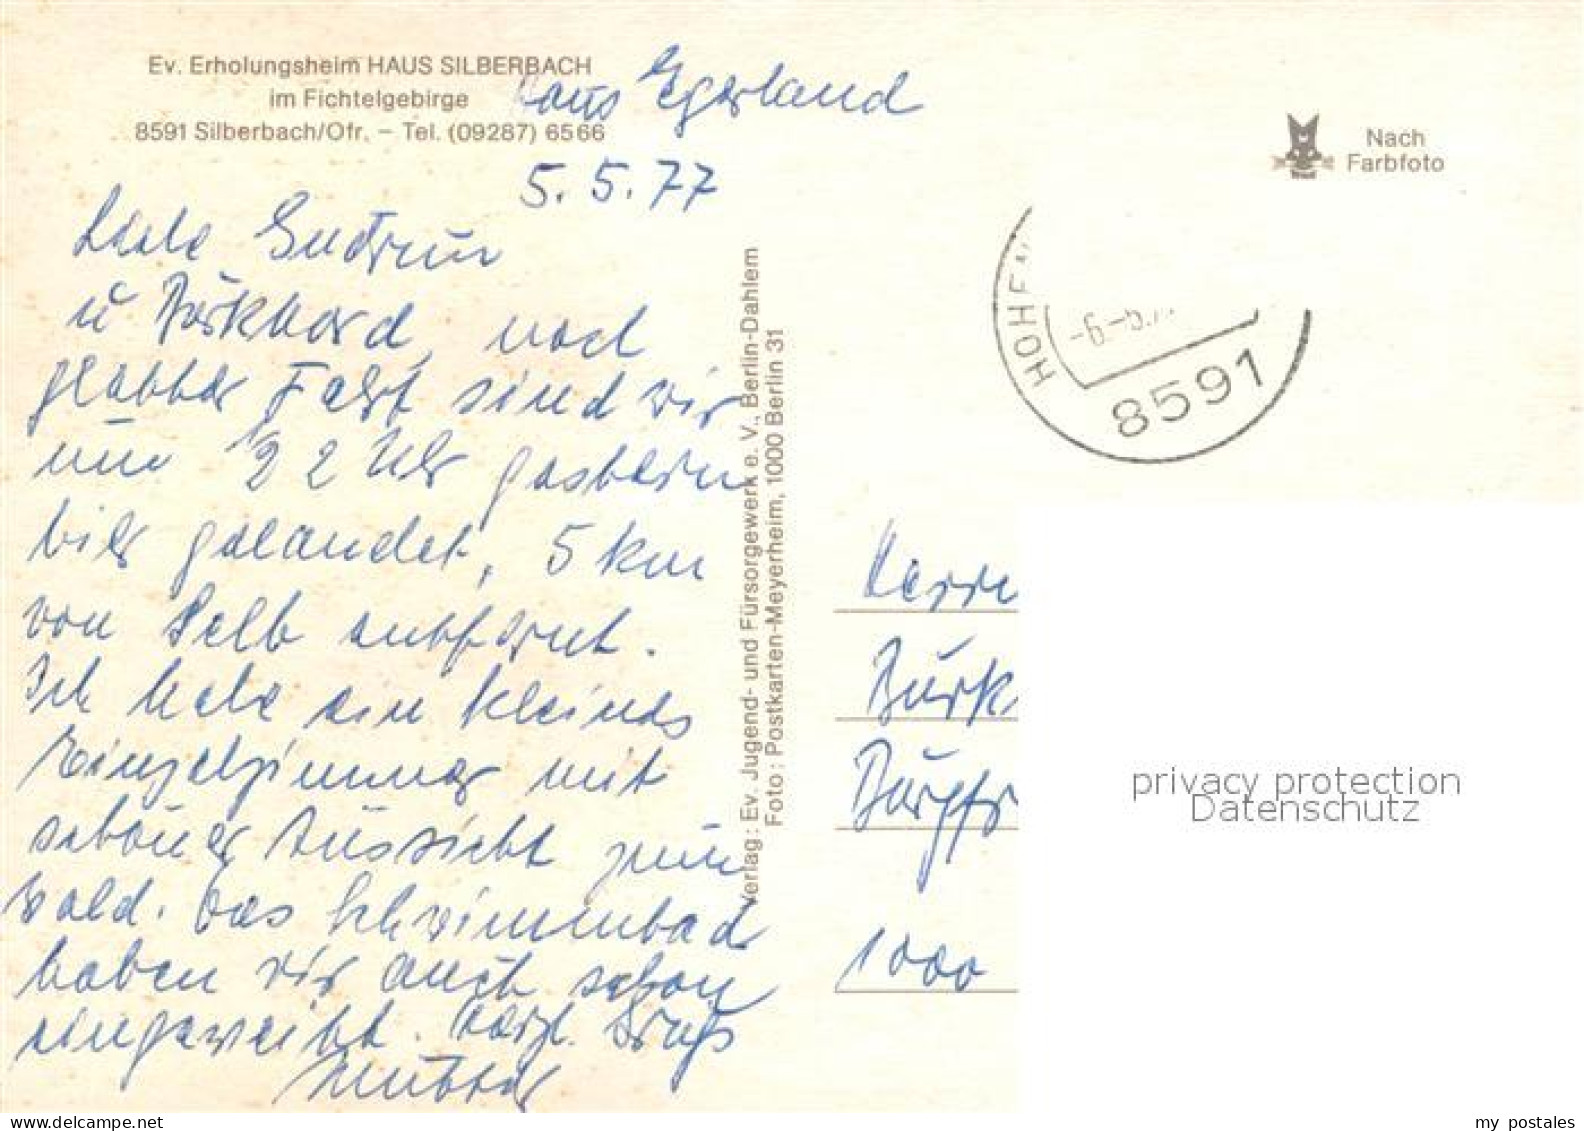 Ev. Erholungsheim HAUS SILBERBACH
im Fichtelgebirge
8591 Silberbach/Ofr. – Tel. (09287) 6566
Haus Egerland
5.5.77
Liebe Gudrun
u Burkhard, nach
glatter Fahrt sind wir
um 1/2 2 Uhr gestern
hier gelandet, 5 km
von Selb entfernt.
Ich habe ein kleines
Einzelzimmer mit
schöner Aussicht zum
Wald. Das Schwimmbad
haben wir auch schon
eingeweiht. Herzl. Gruß
Mutter
Verlag: Ev. Jugend- und Fürsorgewerk e. V., Berlin-Dahlem
Foto: Postkarten-Meyerheim, 1000 Berlin 31
Nach
Farbfoto
HOHE
-6.-5.7
8591
Herrn
Burk
Burgfr
1000
privacy protection
Datenschutz
delcampe.net
my_postales